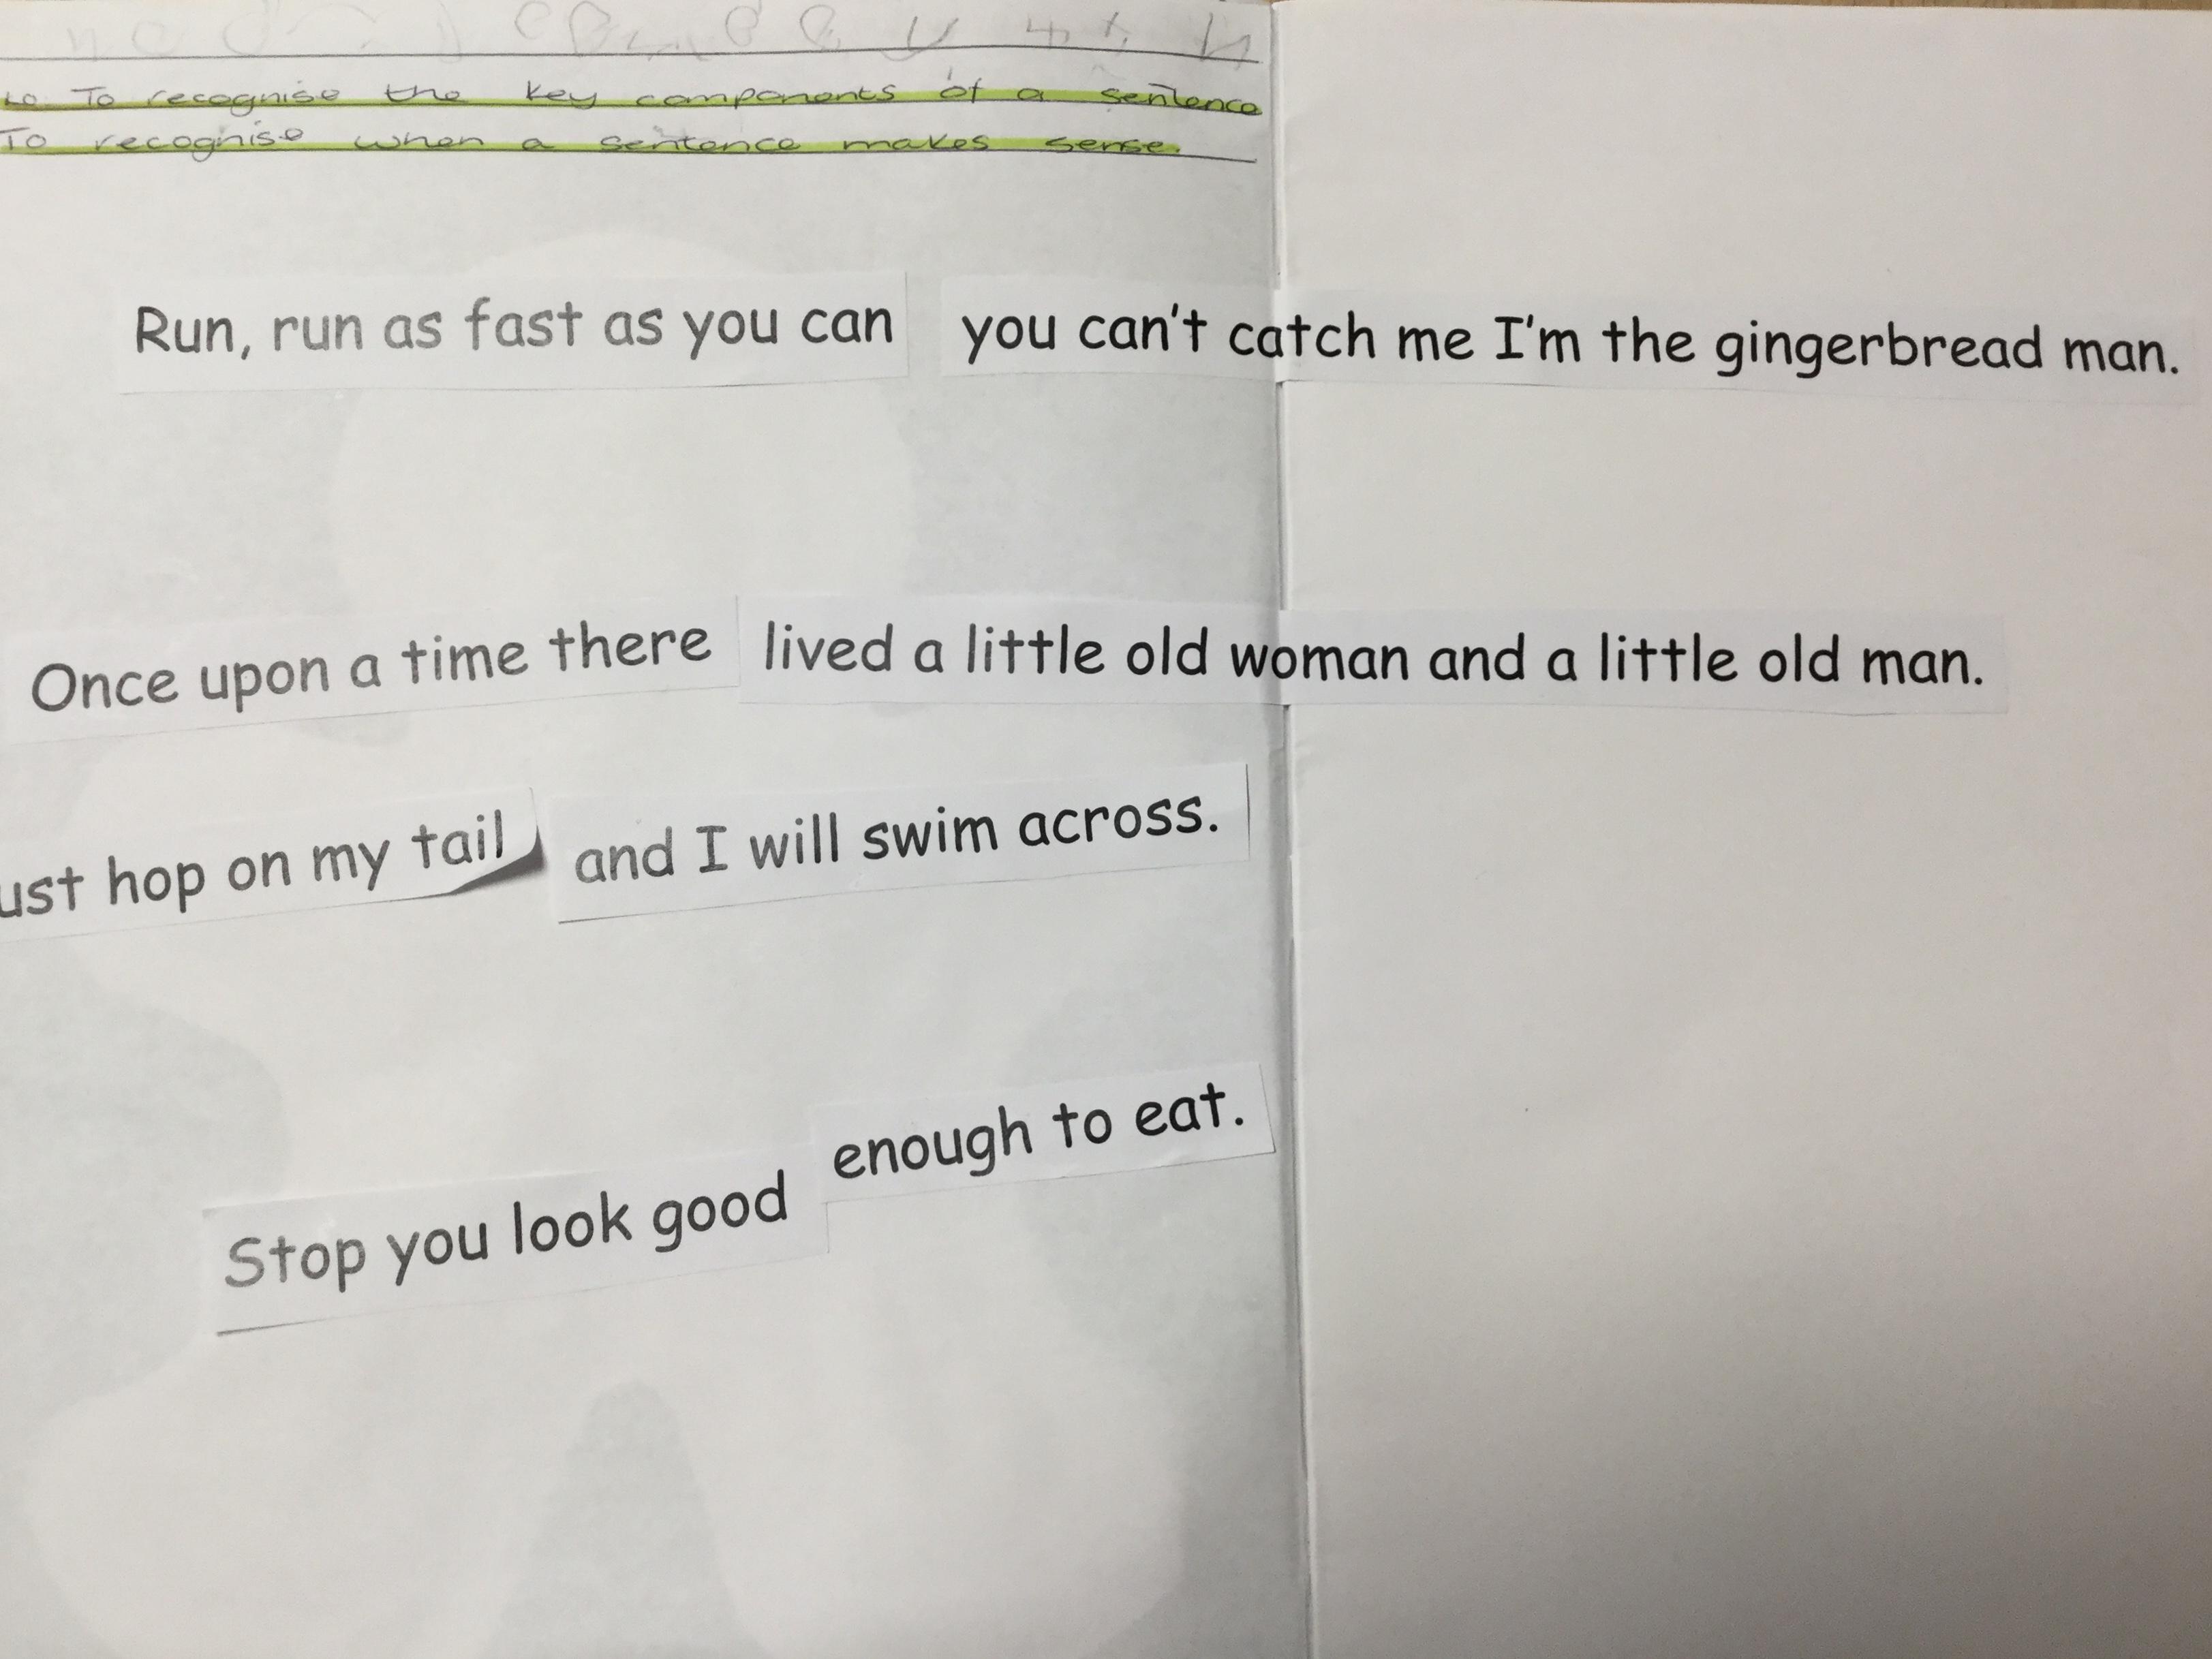 Lo To recognise the key components of a sentence
To recognise when a sentence makes sense.
Run, run as fast as you can you can't catch me I'm the gingerbread man.
Once upon a time there lived a little old woman and a little old man.
ust hop on my tail and I will swim across.
Stop you look good enough to eat.